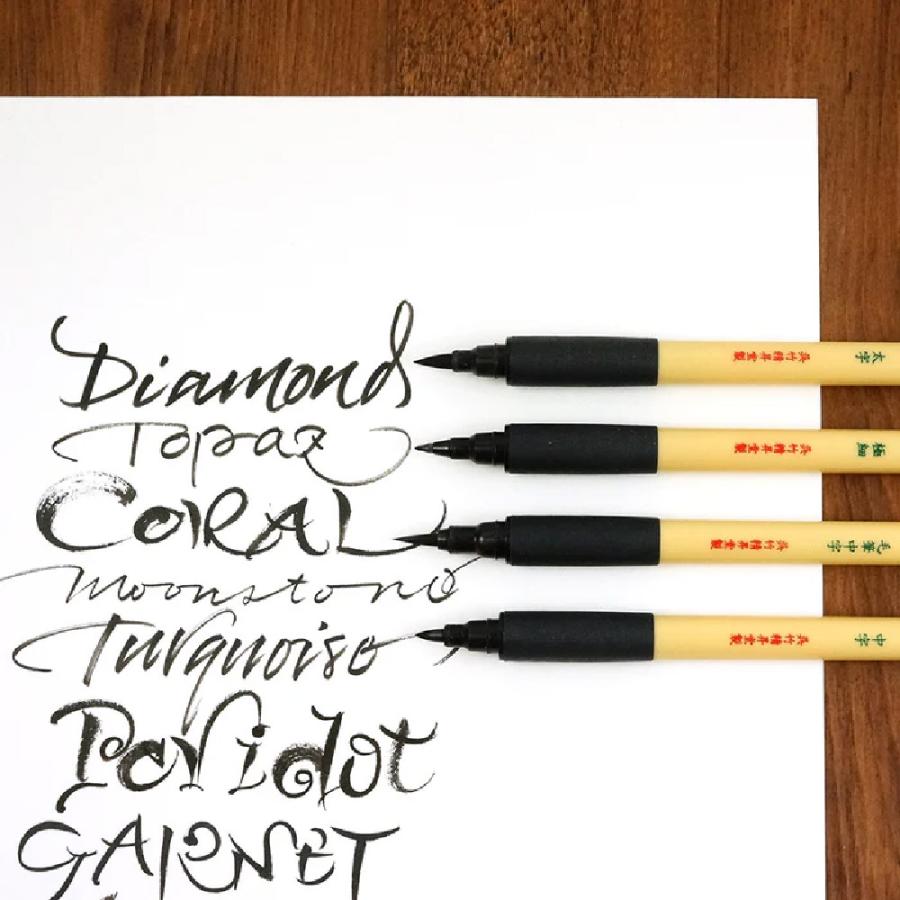 Diamond
Topaz
CORAL
Moonstone
Turquoise
Peridot
GARNET
呉竹精昇堂製 太字
呉竹精昇堂製 極細
呉竹精昇堂製 毛筆中字
呉竹精昇堂製 中字